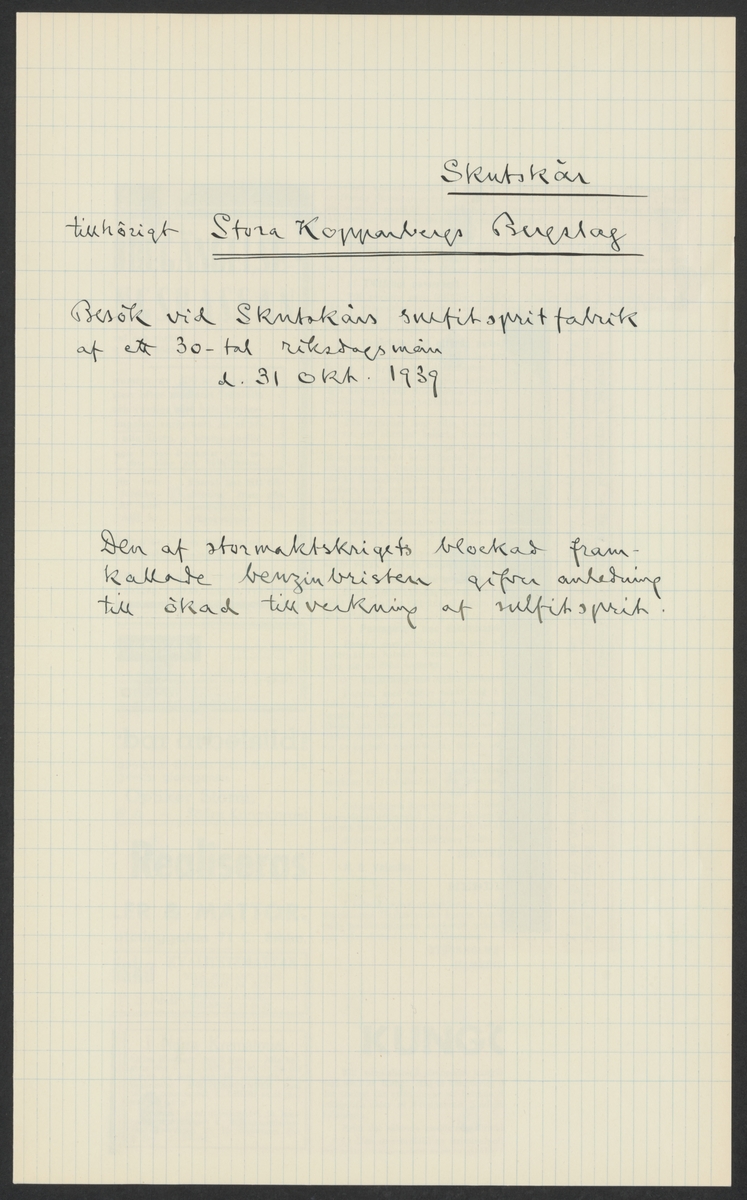 Skutskär
tillhörigt Stora Kopparbergs Bergslag
Besök vid Skutskärs sulfitspritfabrik
af ett 30-tal riksdagsmän
d. 31 Okt. 1939
Den af stormaktskrigets blockad fram-
kallade benzinbristen gifver anledning
till ökad tillverkning af sulfitsprit.